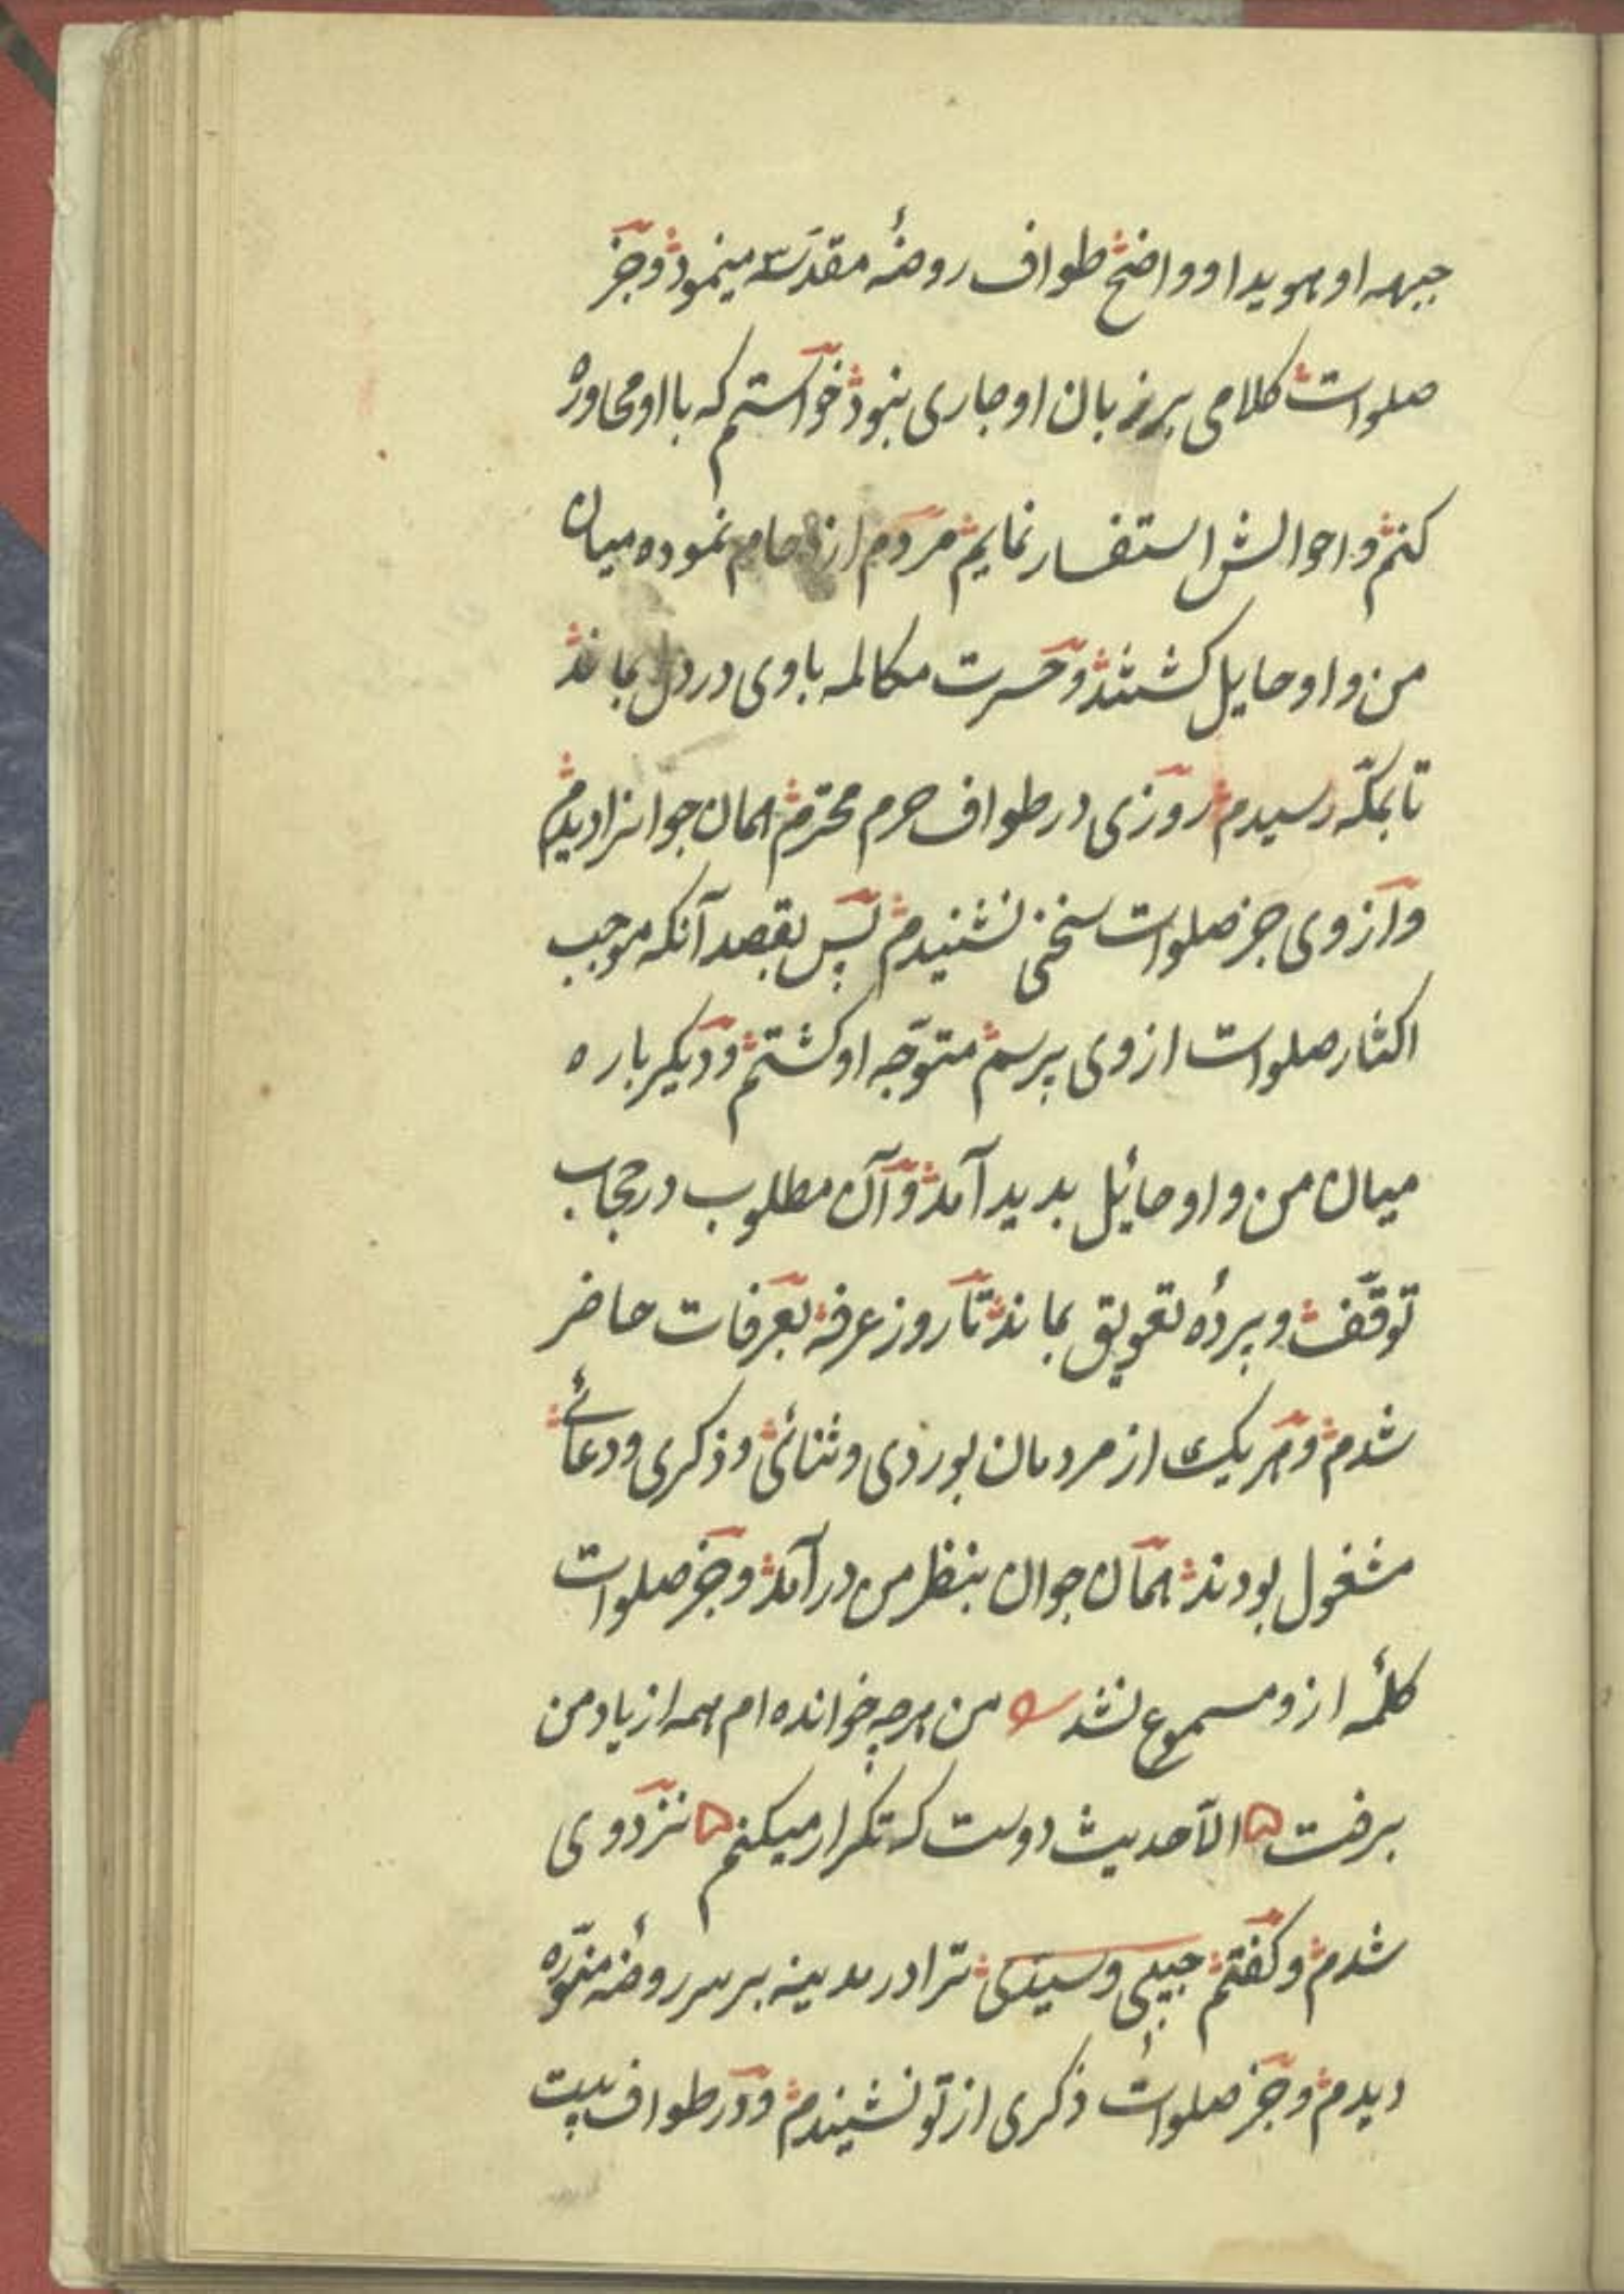 جبهه او هویدا و واضح طواف روضهٔ مقدسه مینمود و جز
صلوات کلامی بر زبان او جاری نبود خواستم که با او محاوره
کنم و احوالش استفسار نمایم مردم ازدحام نموده میان
من و او حایل کشتند و حسرت مکالمه با وی در دل بماند
تا بمکّه رسیدم روزی در طواف حرم محترم همان جوانرا دیدم
و از وی جز صلوات سخنی نشنیدم پس بقصد آنکه موجب
اکثار صلوات از وی پرسم متوجّه او کشتم و دیکر باره
میان من و او حائیل بدید آمد و آن مطلوب در حجاب
توقّف و پردهٔ تعویق بماند تا روز عرفه بعرفات حاضر
شدم و هر یک از مردمان بوردی و ثنائی و ذکری و دعائے
مشغول بودند همان جوان بنظر من درآمد و جز صلوات
کلمهٔ ازو مسموع نشد من هر چه خوانده ام همه از یاد من
برفت الّا حدیث دوست که تکرار میکنم نزد وی
شدم و کفتم حبیبی و سیدی ترا در مدینه بر سر روضهٔ منوّره
دیدم و جز صلوات ذکری از تو نشیندم و در طواف بیت